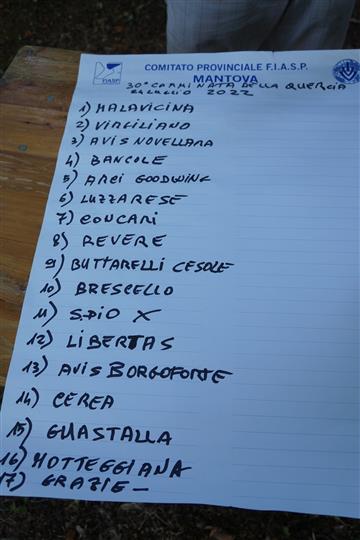 FIASP
COMITATO PROVINCIALE F.I.A.S.P.
MANTOVA
30ª CAMMINATA DELLA QUERCIA
24 LUGLIO 2022
1) MALAVICINA
2) VIRGILIANO
3) AVIS NOVELLARA
4) BANCOLE
5) ARCI GOODWING
6) LUZZARESE
7) CONCARI
8) REVERE
9) BUTTARELLI CESOLE
10) BRESCELLO
11) S.PIO X
12) LIBERTAS
13) AVIS BORGOFORTE
14) CEREA
15) GUASTALLA
16) MOTTEGGIANA
17) GRAZIE -